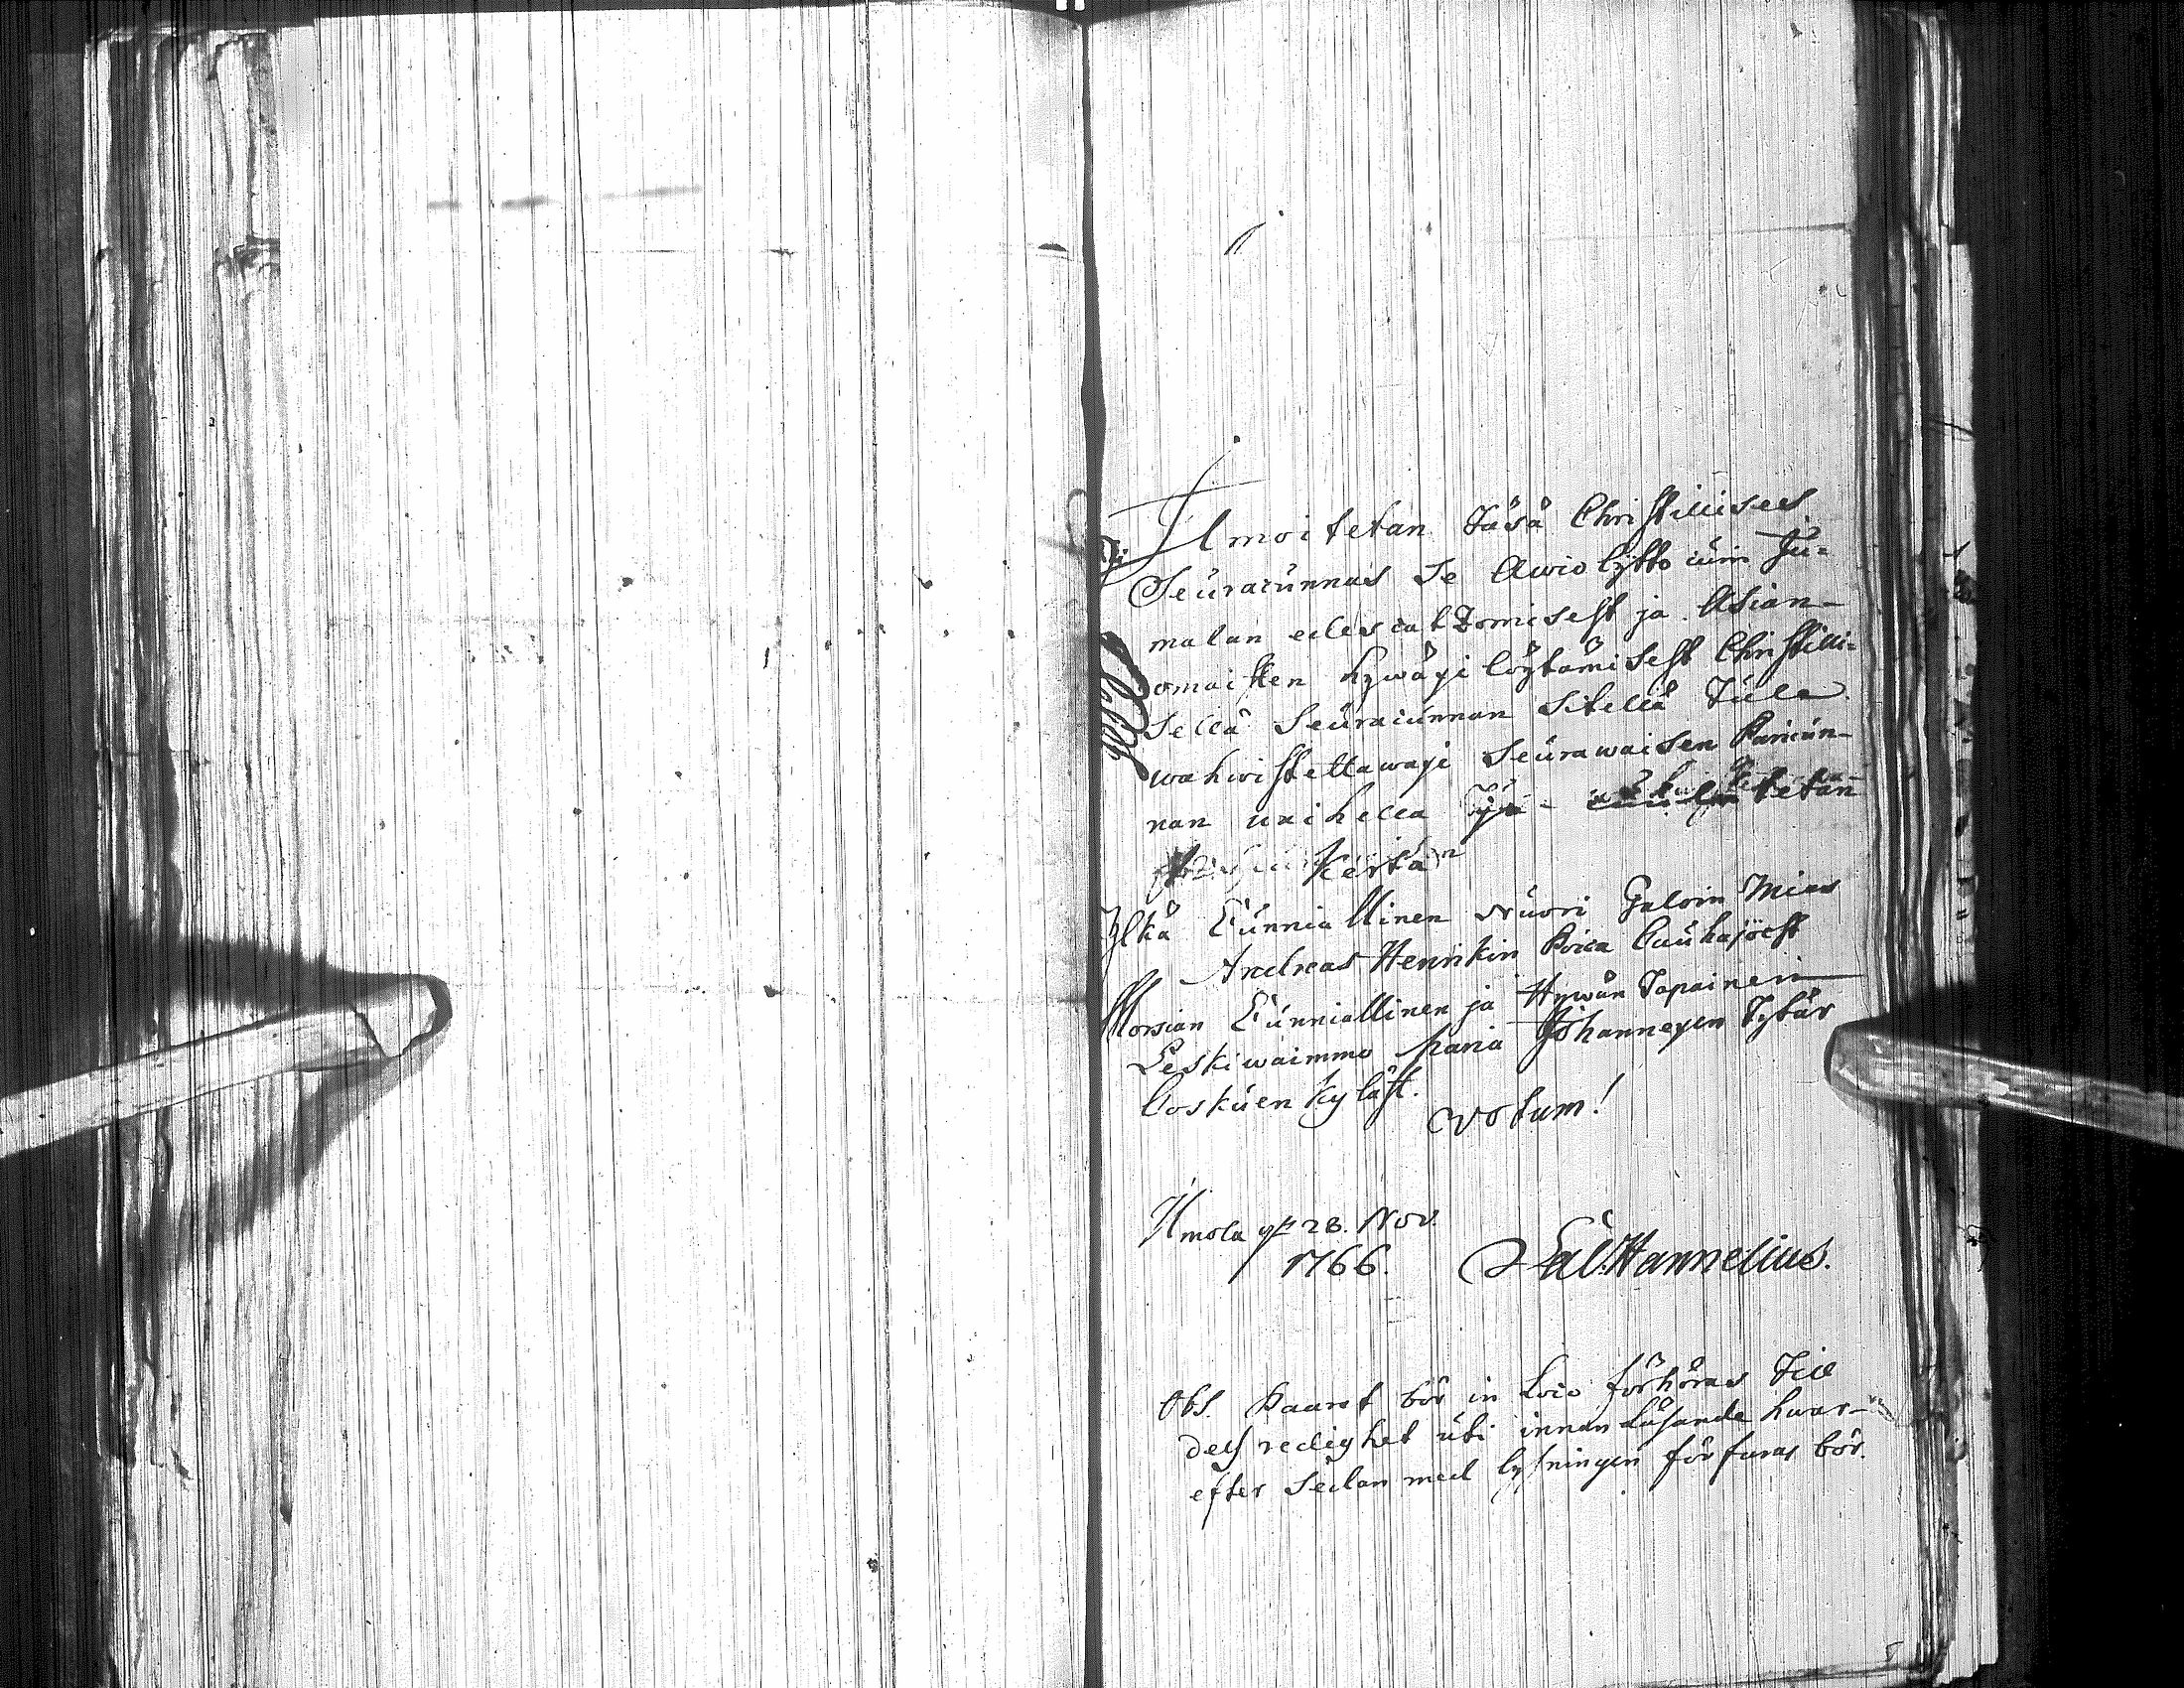 Ilmoitetan Täsä Christilises
Seuracunnas se Awio lijtto cuin Ju-
malan edescatzomisest ja Asian-
omaisten hywäxi löytämisest Christilli-
sellä Seuracunnan Sitellä Tule
wahwistettawaxi Seurawaisen Paricun-
nan waihella tetan
Kertan
Ylkä Cunniallinen Nuori Taloin Mies
Andreas Henrikin Poica Cauhajoest
Morsian Cunniallinen ja Hywän Tapainen
Leskiwaimmo Maria Johannexen Tytär
Coskuen kyläst.
Votum!
Ilmola 28. Nov.
1766. Sal. Hannelius.
Obs. Paaret bör in Loco förhöras Till
dess redighet uti innan Läsande hwar-
efter sedan med lysningen förfaras bör.